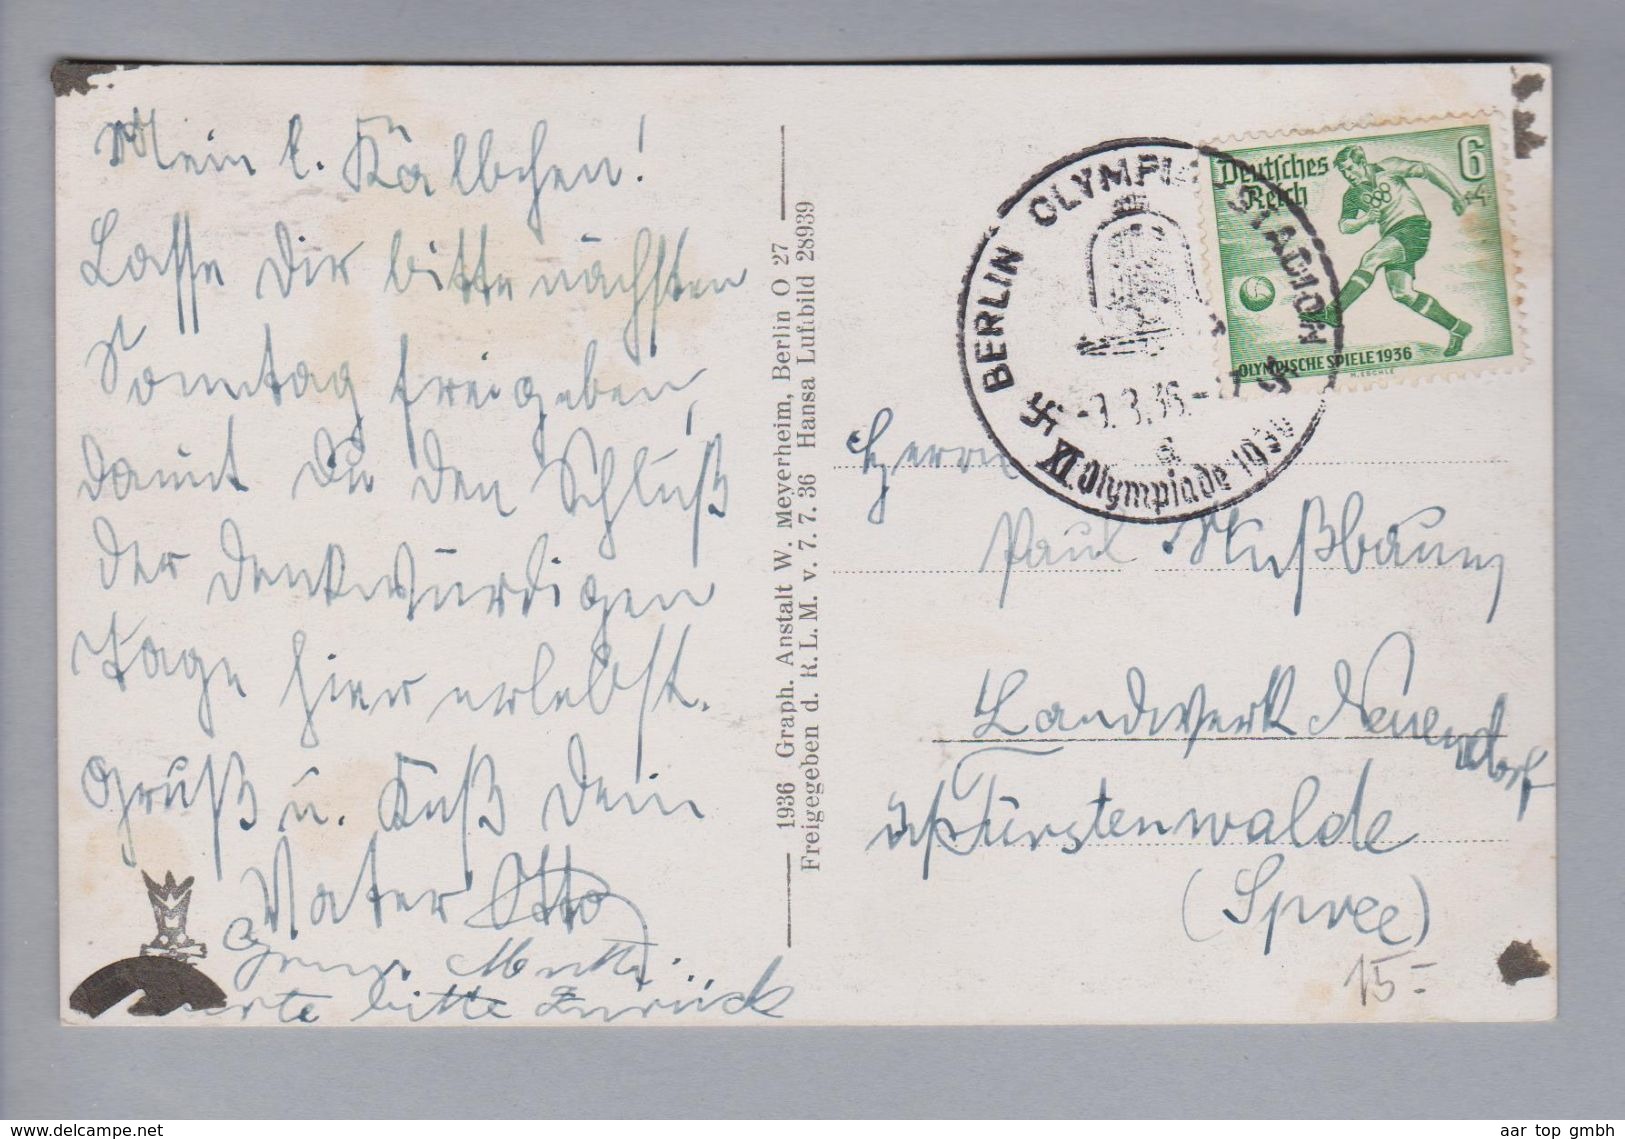 Mein l. Kälbchen!
Lasse Dir bitte nächsten
Sonntag freigeben,
damit Du den Schluß
der denkwürdigen
Tage hier erlebst.
Gruß u. Kuß Dein
Vater Otto
Mutti.
Karte bitte zurück
1936 Graph. Anstalt W. Meyerheim, Berlin O 27
Freigegeben d. R.L.M. v. 7. 7. 36 Hansa Luftbild 28939
BERLIN OLYMPIA-STADION
XI. Olympiade 1936
Deutsches
Reich
6
+4
OLYMPISCHE SPIELE 1936
M. ESCHLE
Herrn
Paul Nußbaum
Landwerk Neuendorf
Fürstenwalde
(Spree)
15.-
www.delcampe.net
aar top gmbh